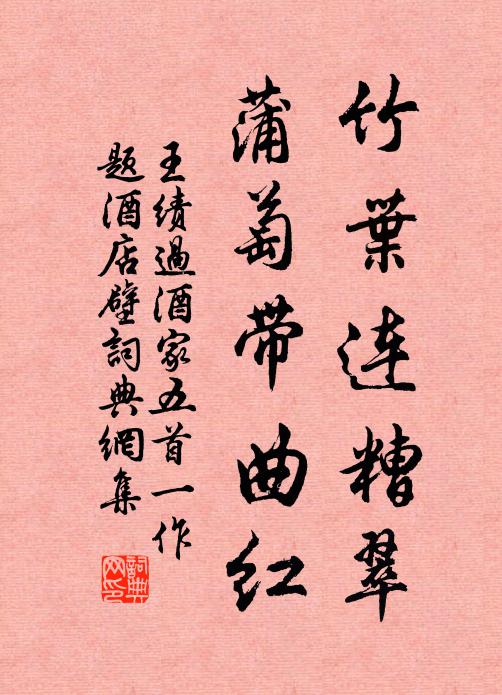 竹葉连糟翠
蒲萄带曲红
王绩過酒家五首一作
题酒店壁詞典網集
詞典网印